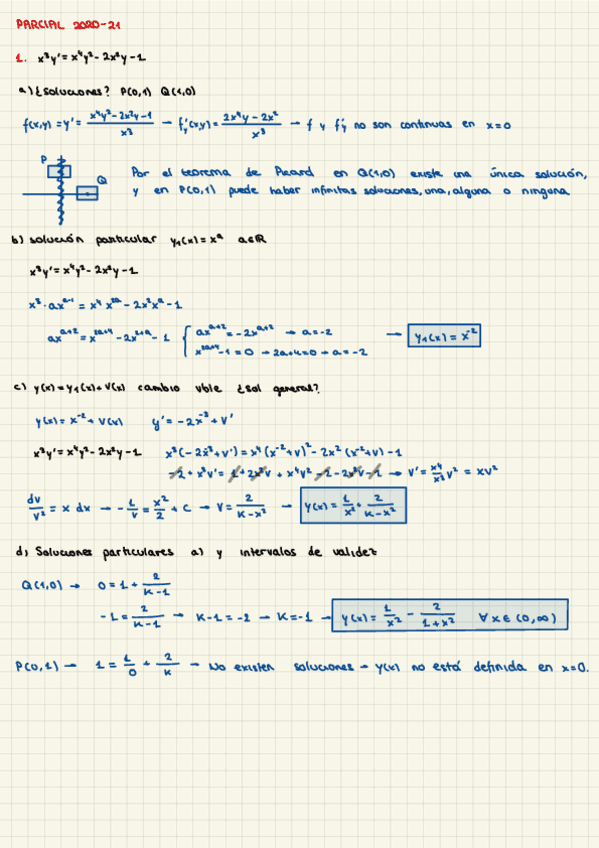 PARCIAL 2020-21
1. x³y' = x⁴y² - 2x²y - 1
a) ¿soluciones? P(0,1) Q(1,0)
f(x,y) = y' = (x⁴y² - 2x²y - 1)/x³ → f'y(x,y) = (2x⁴y - 2x²)/x³ → f y f'y no son continuas en x=0
P
Q
Por el teorema de Picard en Q(1,0) existe una única solución,
y en P(0,1) puede haber infinitas soluciones, una, alguna o ninguna
b) solución particular y₁(x) = xᵃ a∈ℝ
x³y' = x⁴y² - 2x²y - 1
x³·axᵃ⁻¹ = x⁴x²ᵃ - 2x²xᵃ - 1
axᵃ⁺² = x²ᵃ⁺⁴ - 2x²⁺ᵃ - 1 { axᵃ⁺² = -2xᵃ⁺² → a = -2
x²ᵃ⁺⁴ - 1 = 0 → 2a+4=0 → a = -2
→ y₁(x) = x⁻²
c) y(x) = y₁(x) + v(x) cambio vble ¿sol general?
y(x) = x⁻² + v(x) y' = -2x⁻³ + v'
x³y' = x⁴y² - 2x²y - 1 x³(-2x⁻³ + v') = x⁴(x⁻² + v)² - 2x²(x⁻² + v) - 1
-2 + x³v' = 1 + 2x²v + x⁴v² - 2 - 2x²v - 1 → v' = x⁴/x³ v² = xv²
dv/v² = x dx → -1/v = x²/2 + c → v = 2/(K - x²) → y(x) = 1/x² + 2/(K - x²)
d) Soluciones particulares a) y intervalos de validez
Q(1,0) → 0 = 1 + 2/(K-1)
-1 = 2/(K-1) → K-1 = -2 → K = -1 → y(x) = 1/x² - 2/(1+x²) ∀x∈(0,∞)
P(0,1) → 1 = 1/0 + 2/K → No existen soluciones → y(x) no está definida en x=0.